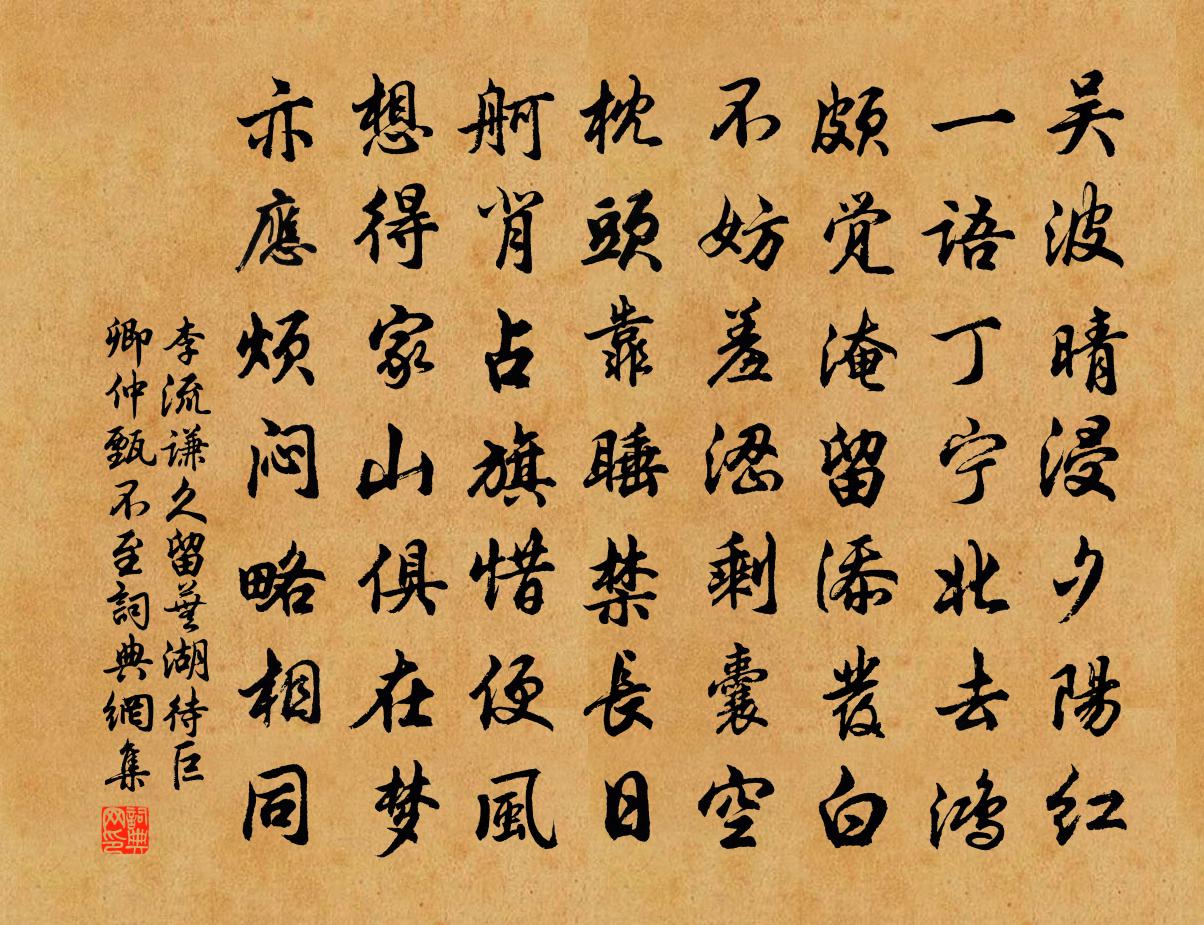 吴波晴浸夕陽红
一語丁宁北去鸿
頗觉淹留添發白
不妨羞涩剩囊空
枕頭靠睡禁長日
舸背占旗惜便風
想得家山俱在梦
亦應烦闷略相同
李流谦久留蕪湖待巨
卿仲甄不至詞典網集
詞典
网印